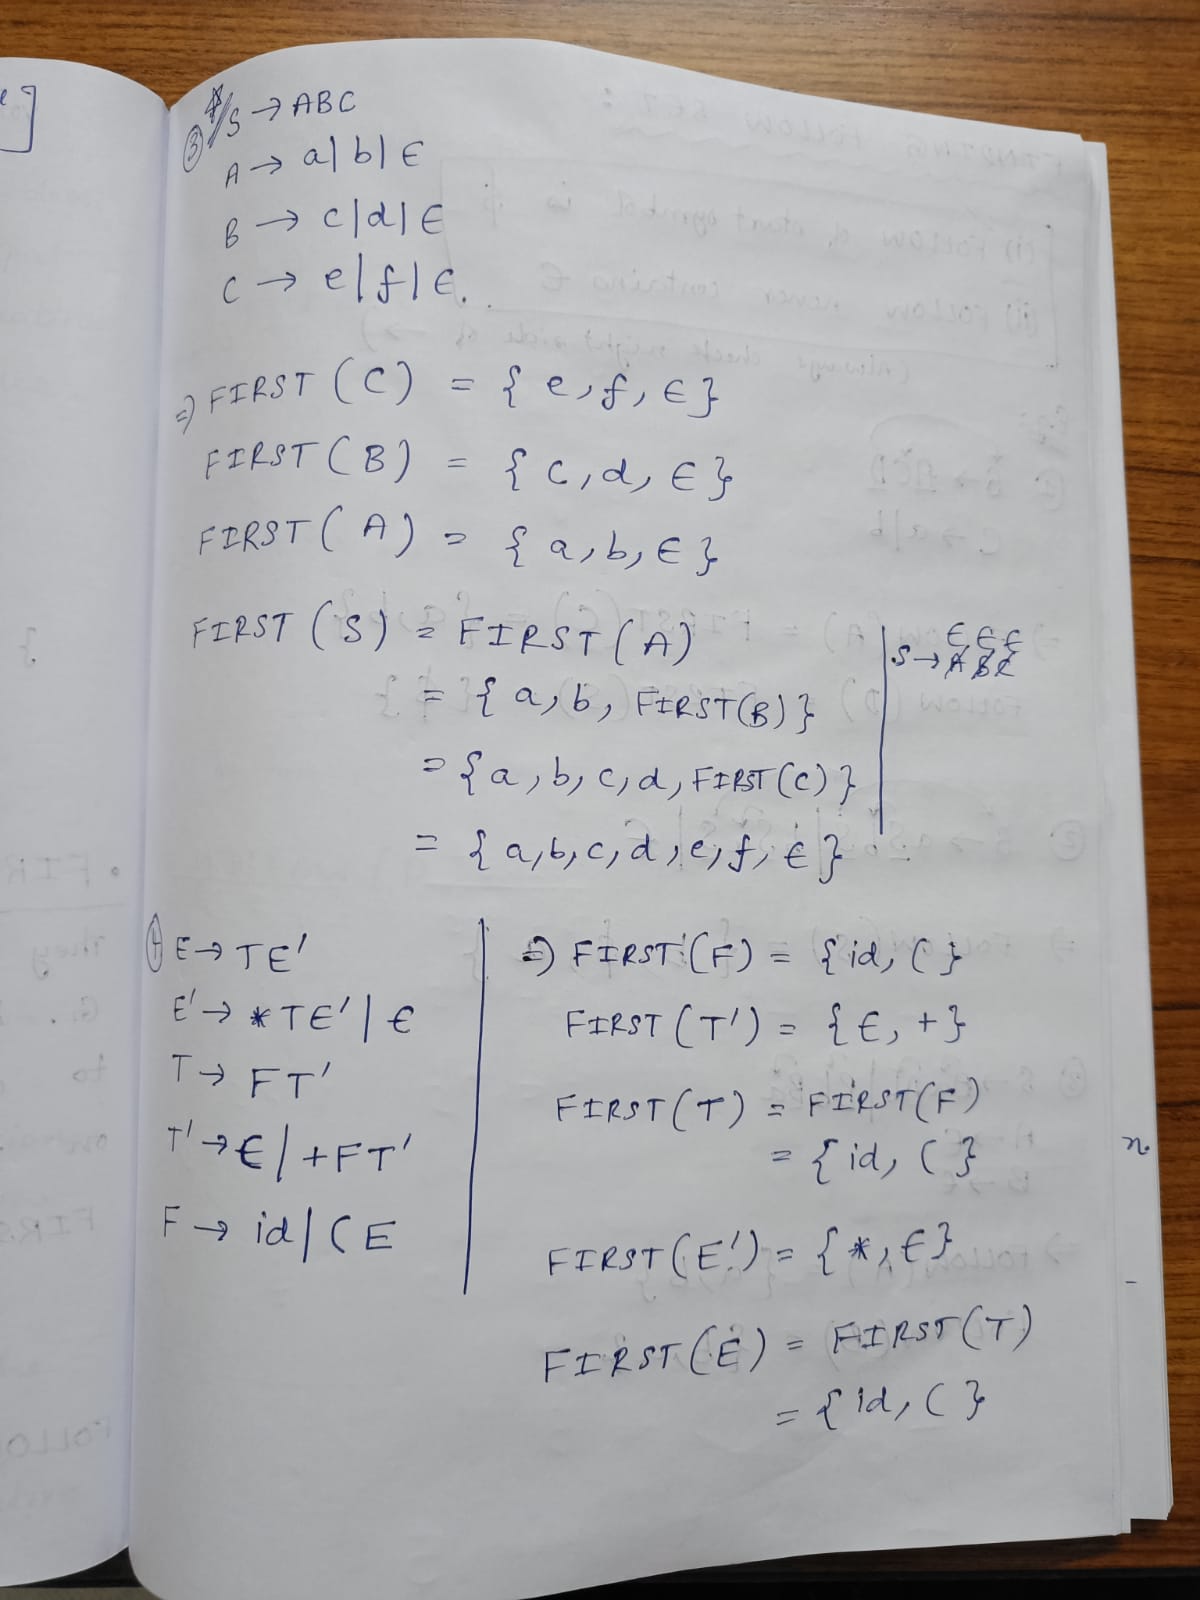 ③ S → ABC
A → a | b | ϵ
B → c | d | ϵ
C → e | f | ϵ.
⇒ FIRST (C) = { e, f, ϵ }
FIRST (B) = { c, d, ϵ }
FIRST (A) = { a, b, ϵ }
FIRST (S) = FIRST (A)
= { a, b, FIRST(B) }
= { a, b, c, d, FIRST (C) }
= { a, b, c, d, e, f, ϵ }
ϵ ϵ ϵ
S → A B C
④ E → TE'
E' → *TE' | ϵ
T → FT'
T' → ϵ | +FT'
F → id | (E
⇒ FIRST (F) = { id, ( }
FIRST (T') = { ϵ, + }
FIRST (T) = FIRST(F)
= { id, ( }
FIRST (E') = { *, ϵ }
FIRST (E) = FIRST (T)
= { id, ( }